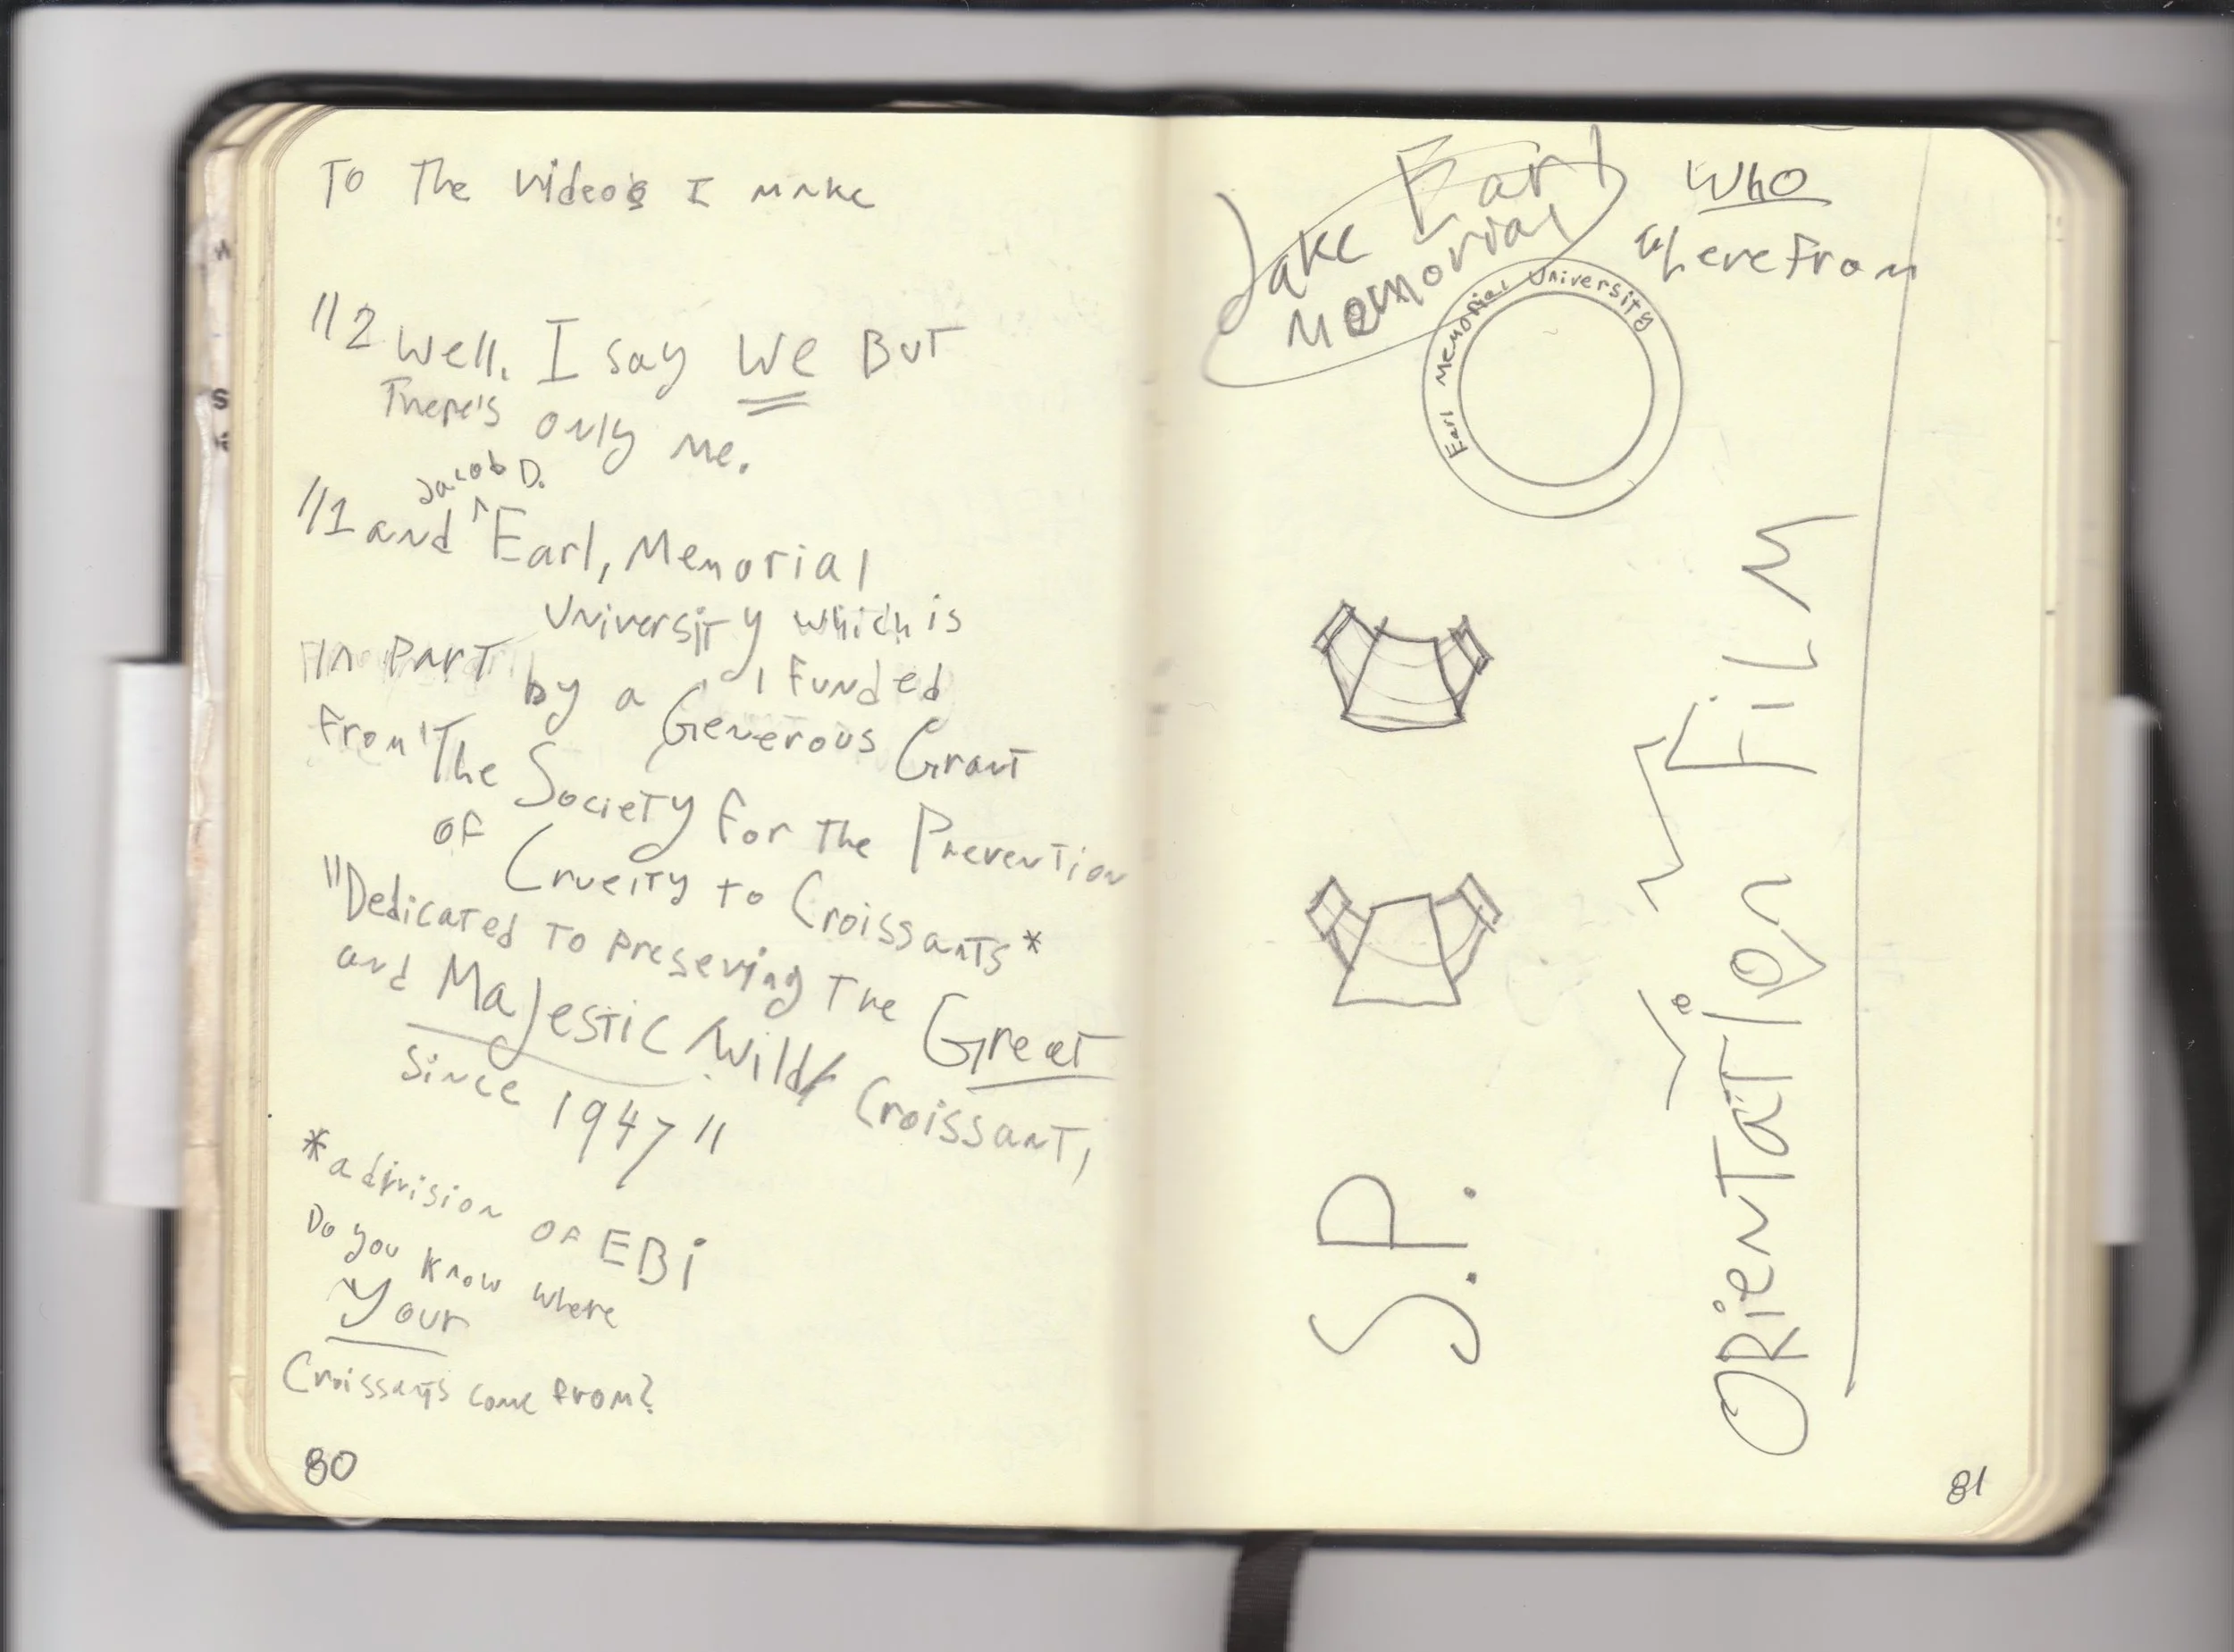 To The videos I make
"2 Well, I say WE BUT
There's only me.
Jacob D.
"1 and ^ Earl, Memorial
University which is
In PART by a , funded
from "The Generous Grant
Society for The Prevention
of Cruelty to Croissants*
"Dedicated to preserving The Great
and Majestic Wild Croissant,
Since 1947"
*a division of EBi
Do you know where
Your
Croissants come from?
80
Jake Earl
Memorial
Who
Where From
Earl Memorial University
S.P.
ORiENTATiON FiLM
81